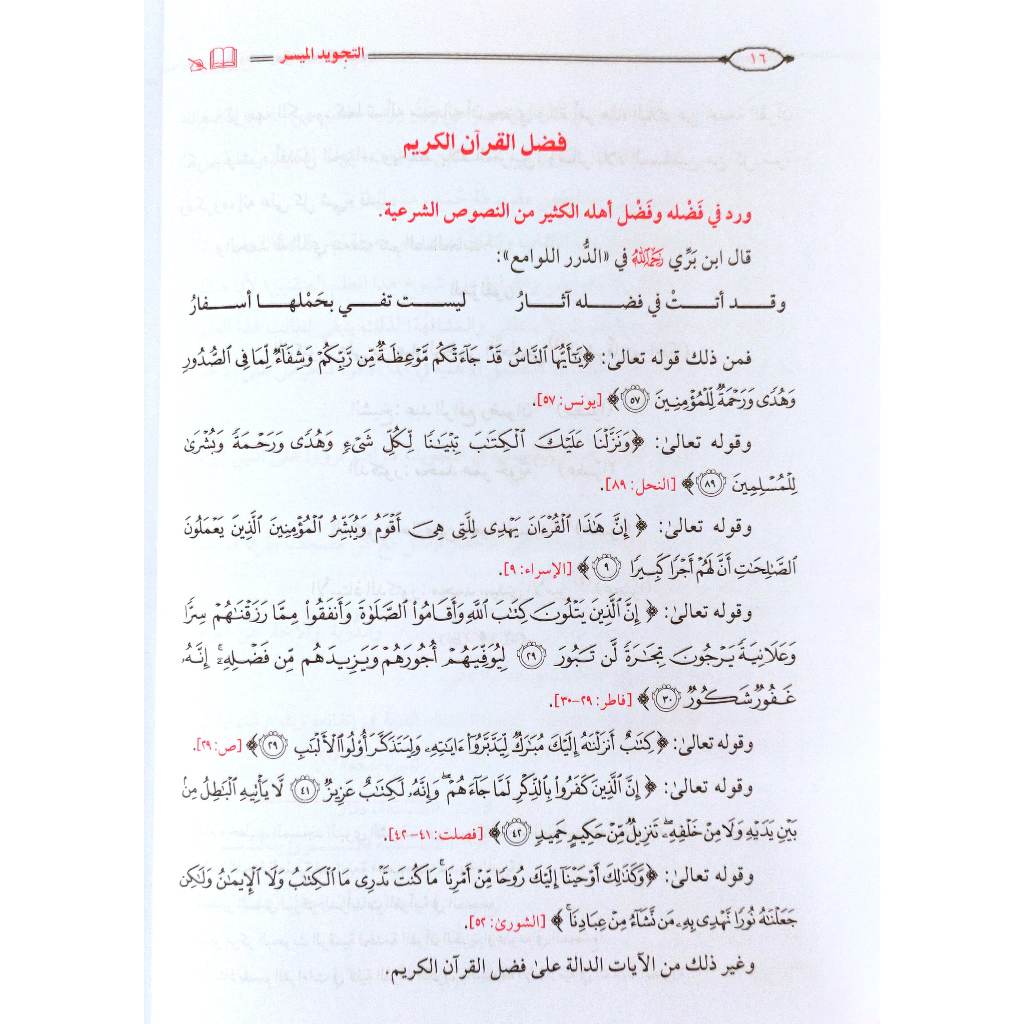 ١٦ التجويد الميسر
فضل القرآن الكريم
ورد في فَضْله وفَضْل أهله الكثير من النصوص الشرعية.
قال ابن بَرِّي رَحِمَهُ اللَّهُ في «الدُّرر اللوامع»:
وقد أتتْ في فضله آثارُ ليست تفي بحَمْلها أسفارُ
فمن ذلك قوله تعالىٰ: ﴿يَٰٓأَيُّهَا ٱلنَّاسُ قَدْ جَآءَتْكُم مَّوْعِظَةٌ مِّن رَّبِّكُمْ وَشِفَآءٌ لِّمَا فِى ٱلصُّدُورِ
وَهُدًى وَرَحْمَةٌ لِّلْمُؤْمِنِينَ ٥٧﴾ [يونس: ٥٧].
وقوله تعالىٰ: ﴿وَنَزَّلْنَا عَلَيْكَ ٱلْكِتَٰبَ تِبْيَٰنًا لِّكُلِّ شَىْءٍ وَهُدًى وَرَحْمَةً وَبُشْرَىٰ
لِلْمُسْلِمِينَ ٨٩﴾ [النحل: ٨٩].
وقوله تعالىٰ: ﴿إِنَّ هَٰذَا ٱلْقُرْءَانَ يَهْدِى لِلَّتِى هِىَ أَقْوَمُ وَيُبَشِّرُ ٱلْمُؤْمِنِينَ ٱلَّذِينَ يَعْمَلُونَ
ٱلصَّٰلِحَٰتِ أَنَّ لَهُمْ أَجْرًا كَبِيرًا ٩﴾ [الإسراء: ٩].
وقوله تعالىٰ: ﴿إِنَّ ٱلَّذِينَ يَتْلُونَ كِتَٰبَ ٱللَّهِ وَأَقَامُوا۟ ٱلصَّلَوٰةَ وَأَنفَقُوا۟ مِمَّا رَزَقْنَٰهُمْ سِرًّا
وَعَلَانِيَةً يَرْجُونَ تِجَٰرَةً لَّن تَبُورَ ٢٩ لِيُوَفِّيَهُمْ أُجُورَهُمْ وَيَزِيدَهُم مِّن فَضْلِهِۦٓ ۚ إِنَّهُۥ
غَفُورٌ شَكُورٌ ٣٠﴾ [فاطر: ٢٩-٣٠].
وقوله تعالىٰ: ﴿كِتَٰبٌ أَنزَلْنَٰهُ إِلَيْكَ مُبَٰرَكٌ لِّيَدَّبَّرُوٓا۟ ءَايَٰتِهِۦ وَلِيَتَذَكَّرَ أُو۟لُوا۟ ٱلْأَلْبَٰبِ ٢٩﴾ [ص: ٢٩].
وقوله تعالىٰ: ﴿إِنَّ ٱلَّذِينَ كَفَرُوا۟ بِٱلذِّكْرِ لَمَّا جَآءَهُمْ ۖ وَإِنَّهُۥ لَكِتَٰبٌ عَزِيزٌ ٤١ لَّا يَأْتِيهِ ٱلْبَٰطِلُ مِنۢ
بَيْنِ يَدَيْهِ وَلَا مِنْ خَلْفِهِۦ ۖ تَنزِيلٌ مِّنْ حَكِيمٍ حَمِيدٍ ٤٢﴾ [فصلت: ٤١-٤٢].
وقوله تعالىٰ: ﴿وَكَذَٰلِكَ أَوْحَيْنَآ إِلَيْكَ رُوحًا مِّنْ أَمْرِنَا ۚ مَا كُنتَ تَدْرِى مَا ٱلْكِتَٰبُ وَلَا ٱلْإِيمَٰنُ وَلَٰكِن
جَعَلْنَٰهُ نُورًا نَّهْدِى بِهِۦ مَن نَّشَآءُ مِنْ عِبَادِنَا ۚ﴾ [الشورىٰ: ٥٢].
وغير ذلك من الآيات الدالة علىٰ فضل القرآن الكريم.